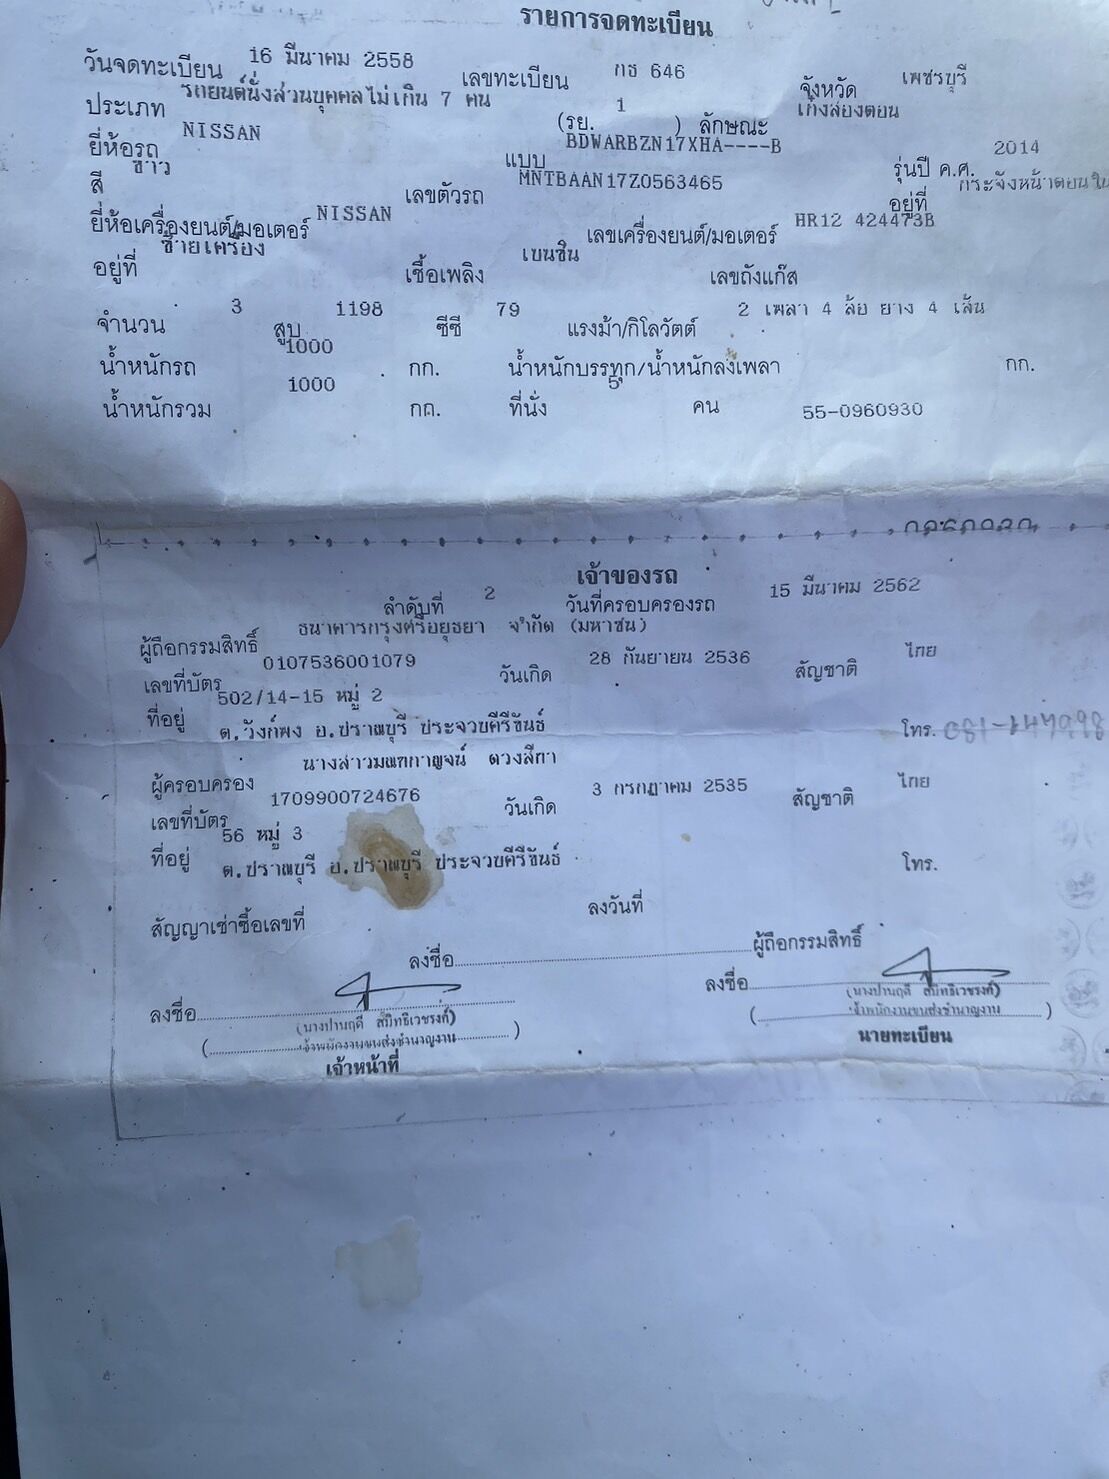 รายการจดทะเบียน
วันจดทะเบียน 16 มีนาคม 2558 เลขทะเบียน กธ 646 จังหวัด เพชรบุรี
ประเภท รถยนต์นั่งส่วนบุคคลไม่เกิน 7 คน (รย. 1 ) ลักษณะ เก๋งสองตอน
ยี่ห้อรถ NISSAN แบบ BDWARBZN17XHA----B รุ่นปี ค.ศ. 2014
สี ขาว เลขตัวรถ MNTBAAN17Z0563465 อยู่ที่ กระจังหน้าตอนใน
ยี่ห้อเครื่องยนต์/มอเตอร์ NISSAN เลขเครื่องยนต์/มอเตอร์ HR12 424473B
อยู่ที่ ซ้ายเครื่อง เชื้อเพลิง เบนซิน เลขถังแก๊ส
จำนวน 3 สูบ 1198 ซีซี 79 แรงม้า/กิโลวัตต์ 2 เพลา 4 ล้อ ยาง 4 เส้น
น้ำหนักรถ 1000 กก. น้ำหนักบรรทุก/น้ำหนักลงเพลา กก.
น้ำหนักรวม 1000 กก. ที่นั่ง 5 คน 55-0960930
เจ้าของรถ
ลำดับที่ 2 วันที่ครอบครองรถ 15 มีนาคม 2562
ผู้ถือกรรมสิทธิ์ ธนาคารกรุงศรีอยุธยา จำกัด (มหาชน)
เลขที่บัตร 0107536001079 วันเกิด 28 กันยายน 2536 สัญชาติ ไทย
ที่อยู่ 502/14-15 หมู่ 2
ต.วังก์พง อ.ปราณบุรี ประจวบคีรีขันธ์ โทร.
ผู้ครอบครอง นางสาวมณฑกาญจน์ ดวงสีกา
เลขที่บัตร 1709900724676 วันเกิด 3 กรกฎาคม 2535 สัญชาติ ไทย
ที่อยู่ 56 หมู่ 3
ต.ปราณบุรี อ.ปราณบุรี ประจวบคีรีขันธ์ โทร.
สัญญาเช่าซื้อเลขที่ ลงวันที่
ลงชื่อ ผู้ถือกรรมสิทธิ์
ลงชื่อ ลงชื่อ
(นางปานฤดี สมิทธิเวชรงค์) (นางปานฤดี สมิทธิเวชรงค์)
( เจ้าพนักงานขนส่งชำนาญงาน ) ( เจ้าพนักงานขนส่งชำนาญงาน )
เจ้าหน้าที่ นายทะเบียน